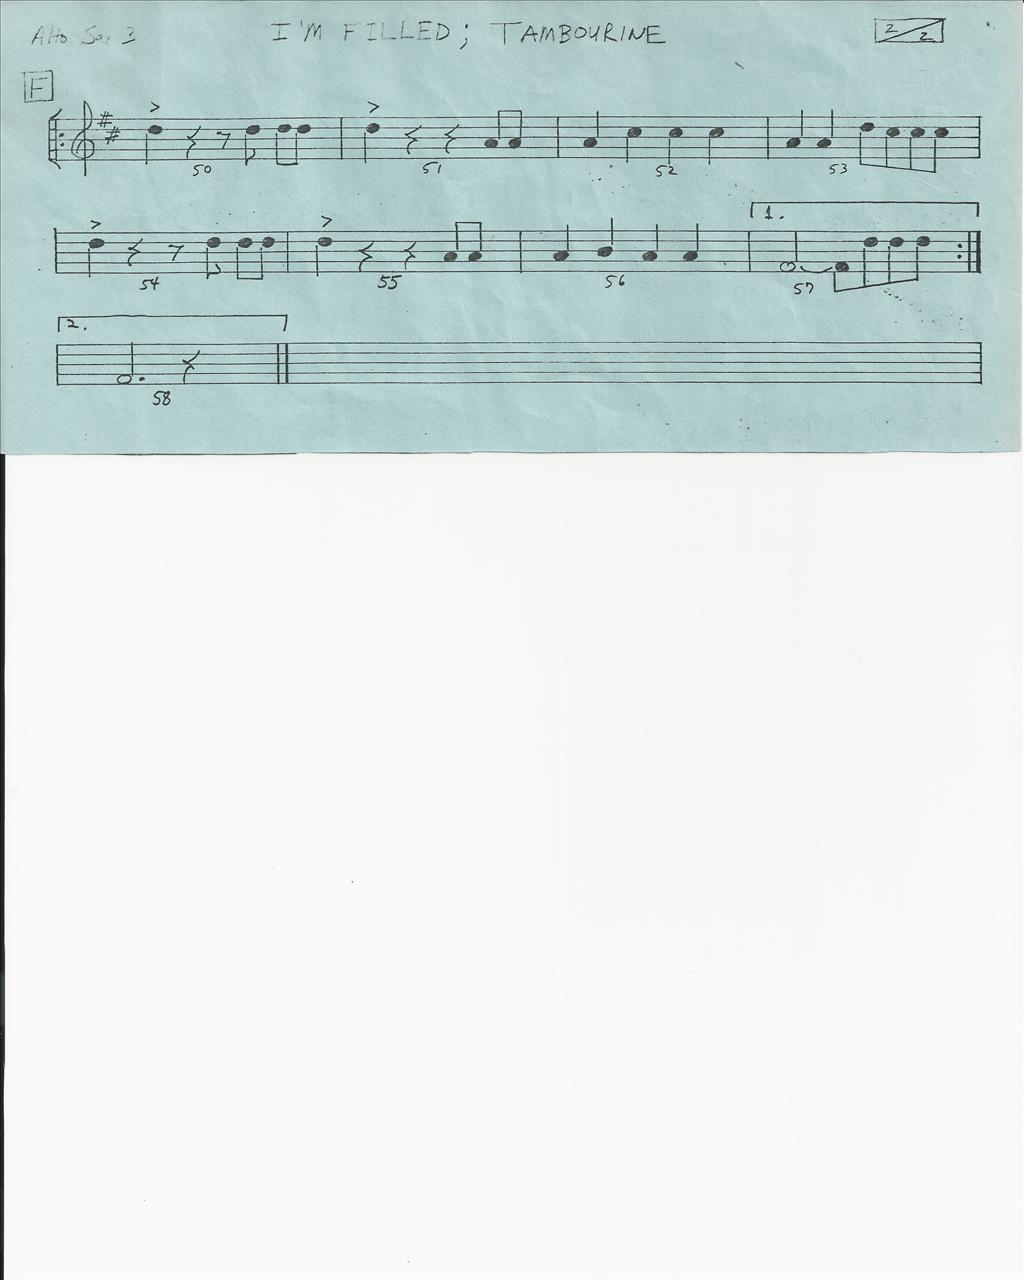 Alto Sax 3 I'M FILLED; TAMBOURINE 2/2
F
50 51 52 53
1.
54 55 56 57
2.
58